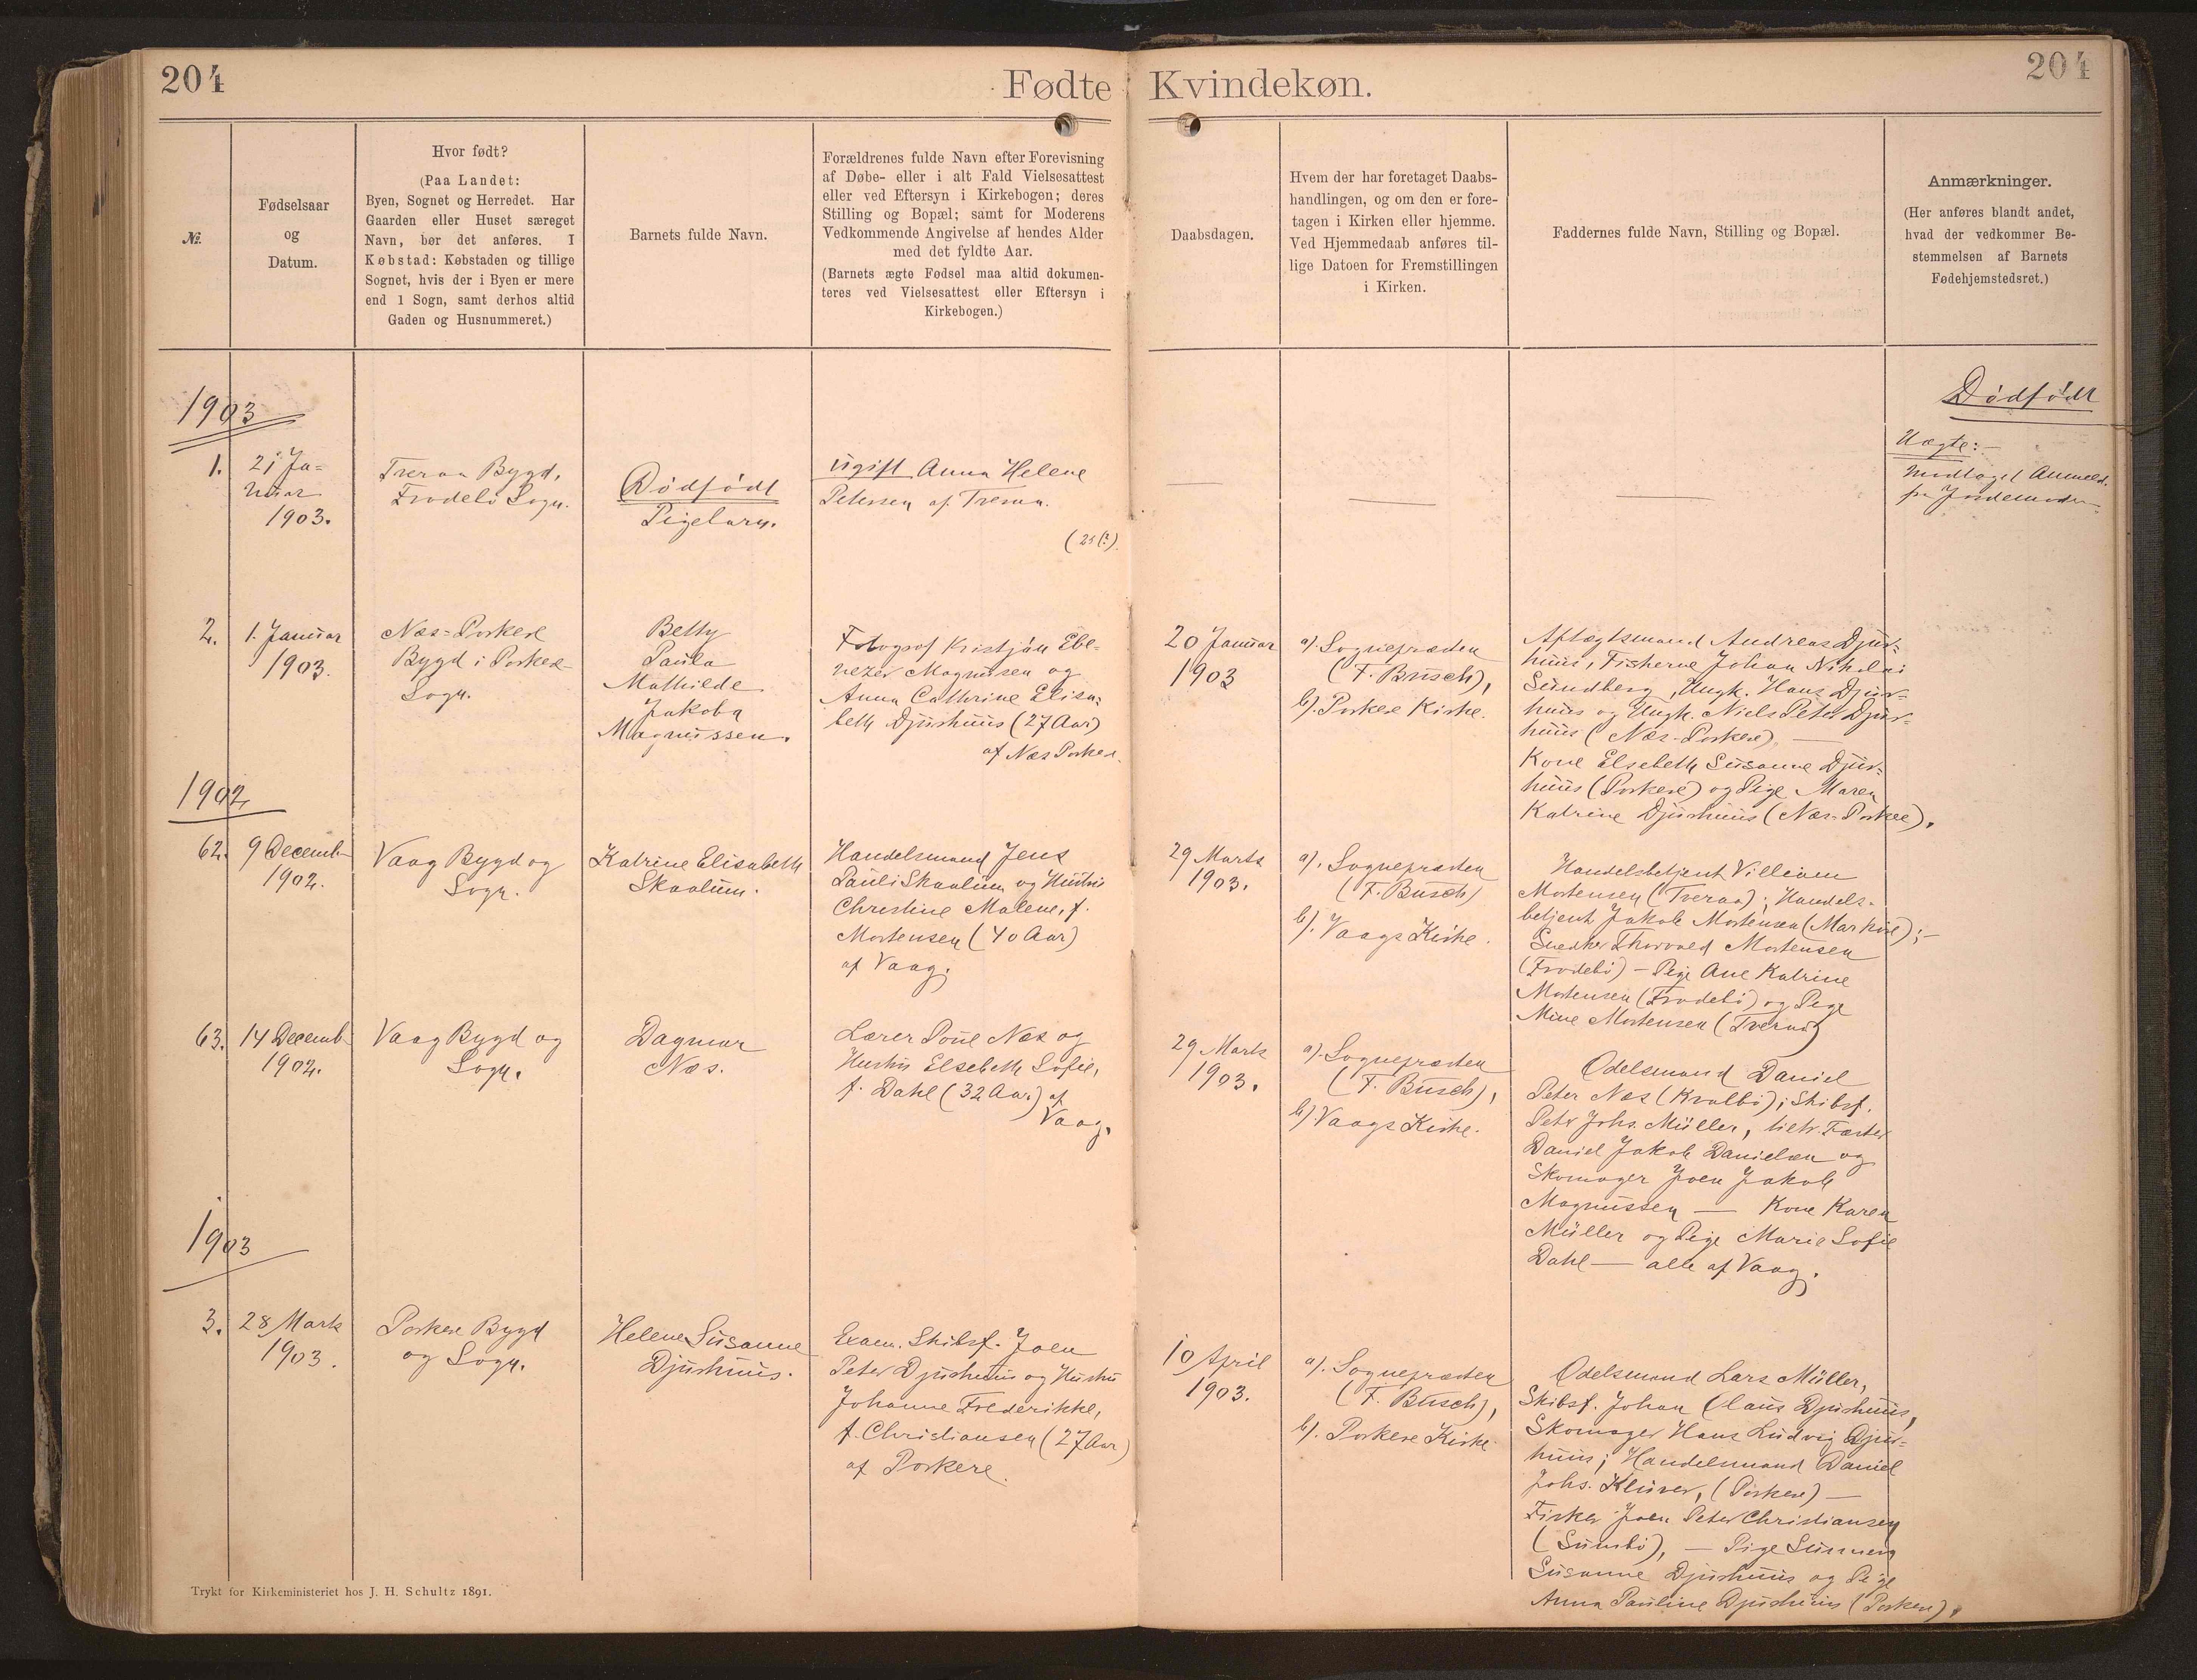 204
Fødte
Kvindekøn.
204
№.
Fødselsaar
og
Datum.
Hvor født?
(Paa Landet:
Byen, Sognet og Herredet. Har
Gaarden eller Huset særeget
Navn, bør det anføres. I
Købstad: Købstaden og tillige
Sognet, hvis der i Byen er mere
end 1 Sogn, samt derhos altid
Gaden og Husnummeret.)
Barnets fulde Navn.
Forældrenes fulde Navn efter Forevisning
af Døbe- eller i alt Fald Vielsesattest
eller ved Eftersyn i Kirkebogen; deres
Stilling og Bopæl; samt for Moderens
Vedkommende Angivelse af hendes Alder
med det fyldte Aar.
(Barnets ægte Fødsel maa altid dokumen-
teres ved Vielsesattest eller Eftersyn i
Kirkebogen.)
Daabsdagen.
Hvem der har foretaget Daabs-
handlingen, og om den er fore-
tagen i Kirken eller hjemme.
Ved Hjemmedaab anføres til-
lige Datoen for Fremstillingen
i Kirken.
Faddernes fulde Navn, Stilling og Bopæl.
Anmærkninger.
(Her anføres blandt andet,
hvad der vedkommer Be-
stemmelsen af Barnets
Fødehjemstedsret.)
1903
1.
21 Ja=
nuar
1903.
Tveraa Bygd,
Frodebö Sogn.
Dödfödt
Pigebarn.
ugift Anna Helene
Petersen af Tveraa.
(25(?).
Dödfödt
Uægte:-
Modtaget Anmeld.
fra Jordemoder
2.
1. Januar
1903.
Næs=Porkere
Bygd i Porkere
Sogn.
Betty
Paula
Mathilde
Jakoba
Magnussen.
Fotograf Kristján Ebe-
nezer Magnusen og
Anna Cathrine Elisa-
beth Djurhuus (27 Aar)
af Næs Porkere.
20 Januar
1903
a). Sognepræsten
(F. Busch),
b). Porkere Kirke.
Aftægtsmand Andreas Djur-
huus, Fiskerne Johan Nikolai
Sundberg, Ungk. Hans Djur-
huus og Ungk. Niels Peter Djur-
huus (Næs-Porkere)
Kone Elsebeth Susanne Djur-
huus (Porkere) og Pige Maren
Katrine Djurhuus (Næs-Porkere).
1902
62.
9 Decemb
1902.
Vaag Bygd og
Sogn.
Katrine Elisabeth
Skaalum.
Handelsmand Jens
Pauli Skaalum og Hustru
Christine Malene, f.
Mortensen (40 Aar)
af Vaag.
29 Marts
1903.
a). Sognepræsten
(F. Busch)
b). Vaags Kirke.
Handelsbetjent Villiam
Mortensen (Tveraa); Handels-
betjent Jakob Mortensen (Markire);-
Snedker Thorvald Mortensen
(Frodebö) - Pige Ane Katrine
Mortensen (Frodebö) og Pige
Mine Mortensen (Tveraa)
63.
14 Decemb
1902.
Vaag Bygd og
Sogn.
Dagmar
Næs.
Lærer Poul Næs og
Hustru Elsebeth Sofie,
f. Dahl (32 Aar) af
Vaag.
29 Marts
1903.
a). Sognepræsten
(F. Busch),
b). Vaags Kirke.
Odelsmand Daniel
Peter Næs (Kvalbö); Skibsf.
Peter Johs. Müller,
Daniel Jakob Danielsen og
Skomager Joen Jakob
Magnussen — Kone Karen
Müller og Pige Marie Sofie
Dahl — alle af Vaag.
1903
3.
28 Marts
1903.
Porkere Bygd
og Sogn.
Helene Susanne
Djurhuus.
Exam. Skibsf. Joen
Peter Djurhuus og Hustru
Johanne Frederikke,
f. Christiansen (27 Aar)
af Porkere.
10 April
1903.
a). Sognepræsten
(F. Busch),
b). Porkere Kirke.
Odelsmand Lars Müller,
Skibsf. Johan Claus Djurhuus,
Skomager Hans Ludvig Djur-
huus; Handelsmand Daniel
Johs. Klüver, (Porkere) —
Fisker Joen Peter Christiansen
(Sumbö), — Pige Sunneva
Susanne Djurhuus og Pige
Anna Pauline Djurhuus (Porkere).
Trykt for Kirkeministeriet hos J. H. Schultz 1891.